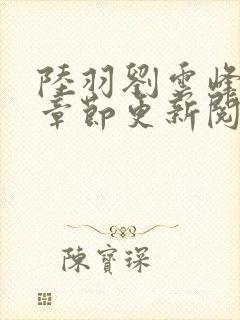 陸羽劉雲峰
章節更新閱
陳寶琛